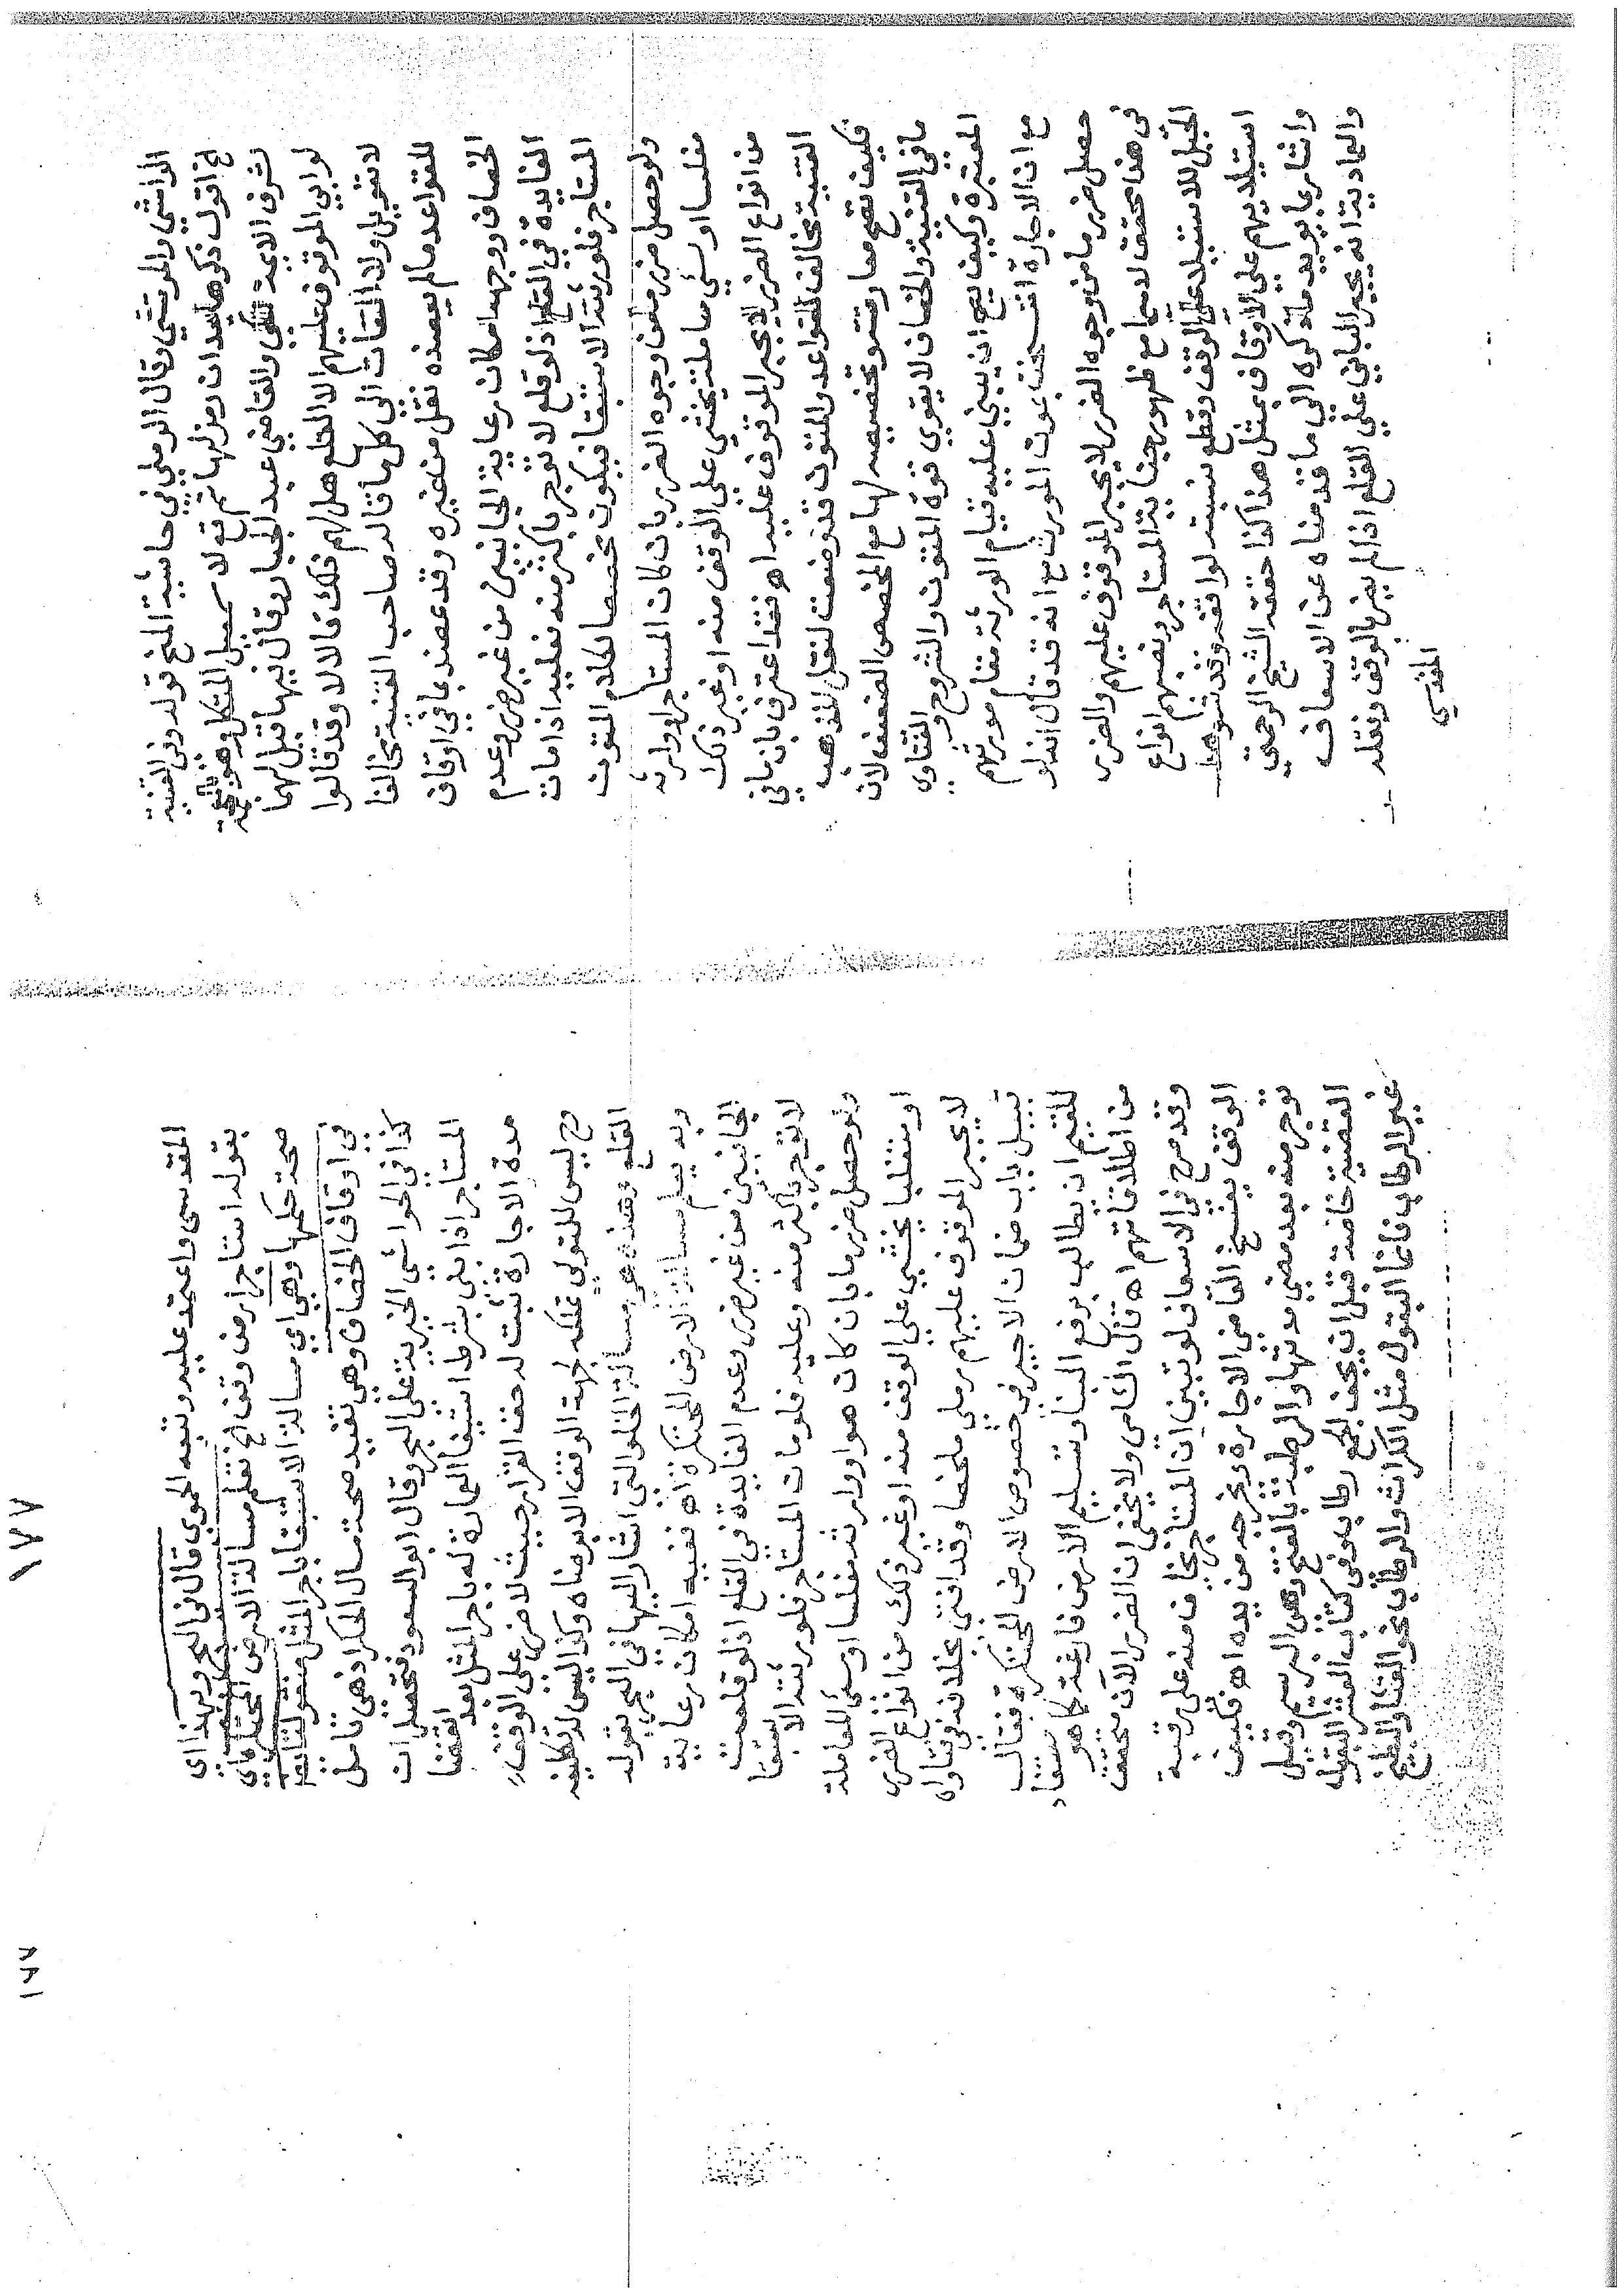 الراشي والمرتشي وقال الرملي في حاشية المنح قوله وفي القنية
الخ اقول ذكرها بعد ان رمز لها شم قع لاسمعيل المتكلم وهو رمز
شرف الايمة المكي والقاضي عبد الجبار وقال فيها قيل لهما
لو ابي الموقوف عليهم الا القلع هل لهم ذلك قالا لا وقد قالوا
لا تعويل ولا التفات الي كل ما قاله صاحب القنية مخالفا
للقواعد ما لم يعضده نقل من غيره وقد عضد بما في اوقاف
الخصاف ووجهه امكان رعاية الجانبين من غير ضرر وعدم
الفايدة في القلع اذ لو قلع لا تؤجر باكثر منه فعليه اذا مات
المستاجر فلورثته الاستبقا فيكون مخصصا لكلام المتون
ولو حصل ضرر ما من وجوه الضرر بان كان المستاجر او وارثه
مفلسا او سئ معاملة يخشي علي الوقف منه او غير ذلك
من انواع الضرر لا يجبر الموقوف عليه اه فقد اعترف بان ما في
القنية مخالف للقواعد والمتون قد وضعت لنقل المذهب
فكيف تصح معارضته وتخصيصه لها مع المخصص الضعف لان
ما في القنية والخصاف لا يقوي قوة المتون والشروح والفتاوى
المعتبرة وكيف يصح ان يبني عليه قيام الورثة مقام مورثهم
مع ان الاجارة انفسخت بموت المورث مع انه قد قال انه لو
حصل ضرر ما من وجوه الضرر لا يجبر الموقوف عليهم والضرر
في هذا محقق لا سيما مع ظهور خيانة المستاجر ونصبهم انواع
الحيل للاستيلا علي الوقف وقطع نسبته لواقفه وقد شوهد
استيلاؤهم علي الاوقاف بمثل هذا كذا حققه الشيخ الرحمتي
واشار بما يويد ما ذكره الي ما قدمناه عن الاسعاف
والعمادية انه يجبر الباني علي القلع اذا لم يضر بالوقف ونقله
المقدسي
١٧٧
المقدسى واعتمد عليه وتبعه الحموى قال فى البحر وبهذا اي
بقوله استاجر ارض وقف الخ تعلم مسالة الارض المحتكرة اي
صحة حكمها وهي اي مسالة الاستبقا باجر المثل منقولة ايضا
في اوقاف الخصاف وهي تفيد صحة مسال الحكر اذ هي تامل
كذا في الحواشي الخيرية علي البحر وقال ابو السعود فتحصل ان
المستاجر اذا بنى بشرط استيفا العمارة له باجر المثل بعد انقضا
مدة الاجارة ثبت له حق القرار حيث لا ضرر على الوقف
وح ليس للمتولي تملكه لجهة الوقف الا برضاه وكذا ليس له تكليفه
القلع وهذه هي مسالة الخلو التي اشار اليها في البحر بقوله
وبه يعلم مسالة الارض المحتكرة اه ففيه امكان رعاية
الجانبين من غير ضرر وعدم الفايدة في القلع اذ لو قلعت
لا تؤجر باكثر منه وعليه فلو مات المستاجر فلورثته الاستبقا
ولو حصل ضرر ما بان كان هو او وارثه مفلسا او سئ المعاملة
او متغلبا يخشي علي الوقف منه او غير ذلك من انواع الضرر
لا يجبر الموقوف عليهم رملي ملخصا وقد افتي بخلافه في فتاواه
قبيل باب ضمان الاجير في خصوص الارض المحتكرة فقال
للقيم ان يطالب برفع البنا وتسليم الارض فارغة كما هو مستفاد
من اطلاقاتهم اه قال الشامى ولا يخفى ان الضرر الآن متحقق
وقد صرح في الاسعاف لو تبين ان المستاجر يخاف منه على رقبة
الوقف يفسخ القاضي الاجارة ويخرجه من يده اه فكيف
تؤجر منه بعد مضي مدتها والرطبة بالفتح وهي البرسيم وقيل
القضية خاصة قبل ان يجف الجمع رطاب وفي كتاب العشر البقول
غير الرطاب فانما البقول مثل الكراث والرطاب نحو القثا والبطيخ
١٧٧